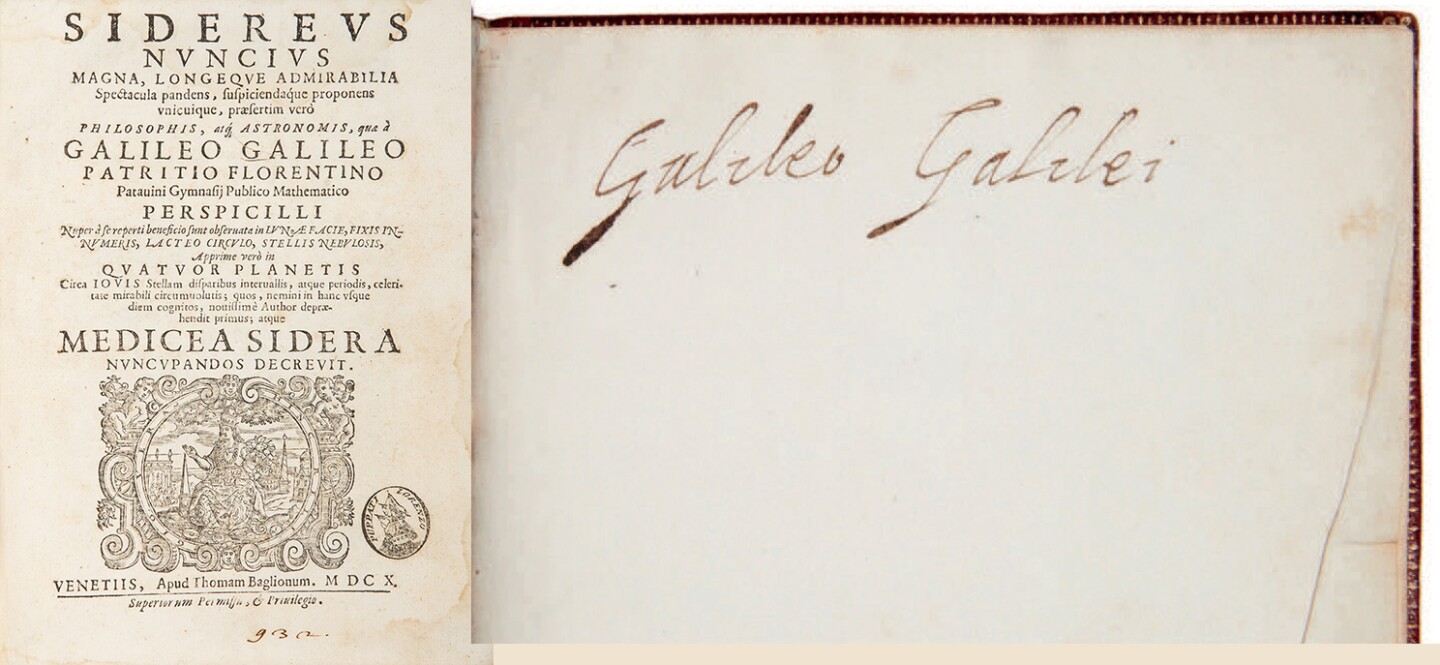 SIDEREVS
NVNCIVS
MAGNA, LONGEQVE ADMIRABILIA
Spectacula pandens, suspiciendaque proponens
vnicuique, præsertim verò
PHILOSOPHIS, atq́ ASTRONOMIS, quæ à
GALILEO GALILEO
PATRITIO FLORENTINO
Patauini Gymnasij Publico Mathematico
PERSPICILLI
Nuper à se reperti beneficio sunt obseruata in LVNÆ FACIE, FIXIS IN-
NVMERIS, LACTEO CIRCVLO, STELLIS NEBVLOSIS,
Apprime verò in
QVATVOR PLANETIS
Circa IOVIS Stellam disparibus interuallis, atque periodis, celeri-
tate mirabili circumuolutis; quos, nemini in hanc vsque
diem cognitos, nouissimè Author depræ-
hendit primus; atque
MEDICEA SIDERA
NVNCVPANDOS DECREVIT.
VENETIIS, Apud Thomam Baglionum. M DC X.
Superiorum Permissu, & Priuilegio.
932.
Galileo Galilei